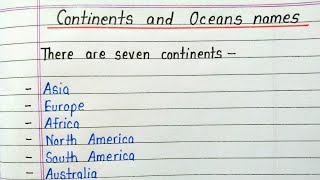 Continents and Oceans names
There are seven continents –
- Asia
- Europe
- Africa
- North America
- South America
- Australia